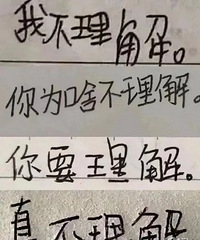 我不理解。
你为啥不理解。
你要理解。
真不理解